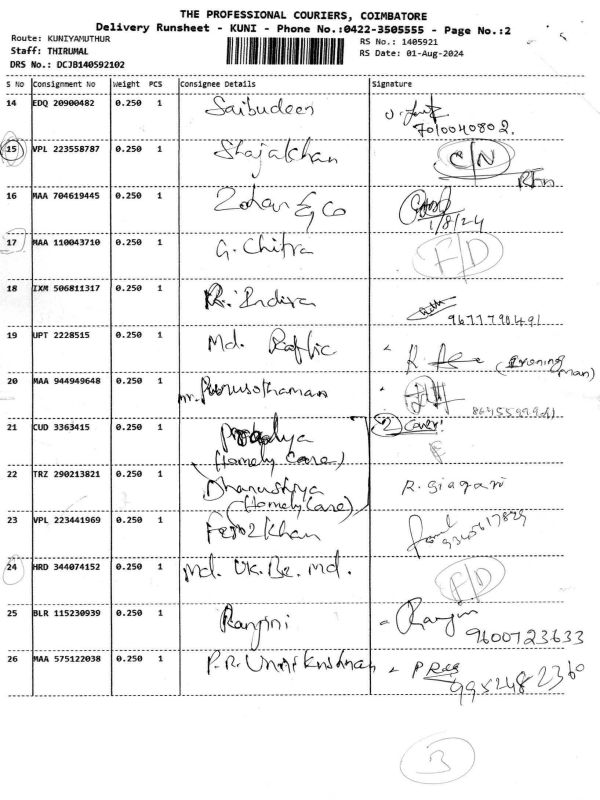 THE PROFESSIONAL COURIERS, COIMBATORE
Delivery Runsheet - KUNI - Phone No.:0422-3505555 - Page No.:2
Route: KUNIYAMUTHUR RS No.: 1405921
Staff: THIRUMAL RS Date: 01-Aug-2024
DRS No.: DCJB140592102
S No Consignment No Weight PCS Consignee Details Signature
14 EDQ 20900482 0.250 1 Saibudeen
7010040802.
15 VPL 223558787 0.250 1 Shajakhan C/N
16 MAA 704619445 0.250 1 Zohan & Co
1/8/24
17 MAA 110043710 0.250 1 G. Chitra F/D
18 IXM 506811317 0.250 1 R. Indira
9677790491
19 UPT 2228515 0.250 1 Md. Raffic R. (Ironing
man)
20 MAA 944949648 0.250 1 mr. Purusothaman
21 CUD 3363415 0.250 1 2 Cover!
(Homely Care)
22 TRZ 290213821 0.250 1 Dhanushya R. Giagari
(Homely Care)
23 VPL 223441969 0.250 1 Feroz Khan
24 HRD 344074152 0.250 1 Md. Uk. Be. md. F/D
25 BLR 115230939 0.250 1 Ranjini Ranjini
9600723633
26 MAA 575122038 0.250 1 P.R. Unnikrishnan
9952482360
3